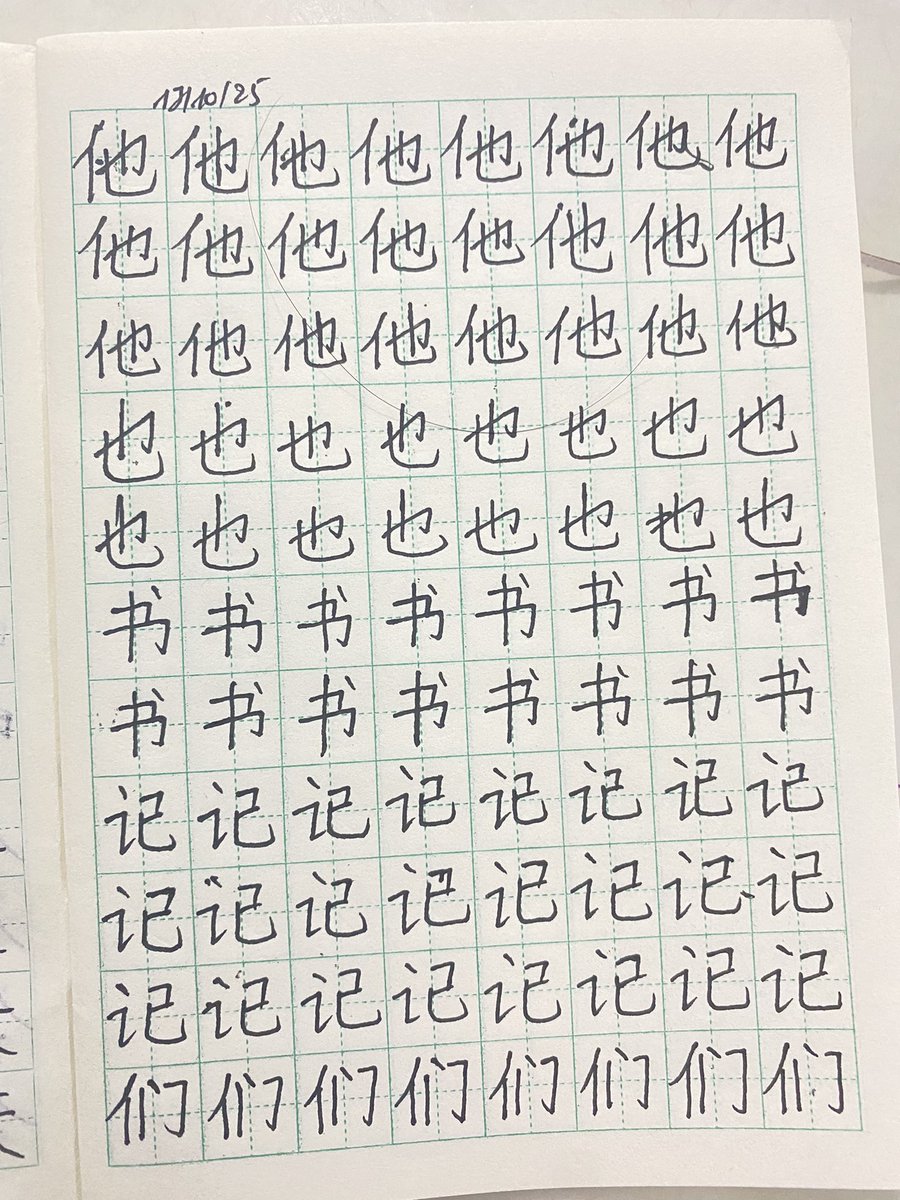 17/10/25
他他他他他他他他
他他他他他他他他
他他他他他他他他
也也也也也也也也
也也也也也也也也
书书书书书书书书
书书书书书书书书
记记记记记记记记
记记记记记记记记
记记记记记记记记
们们们们们们们们